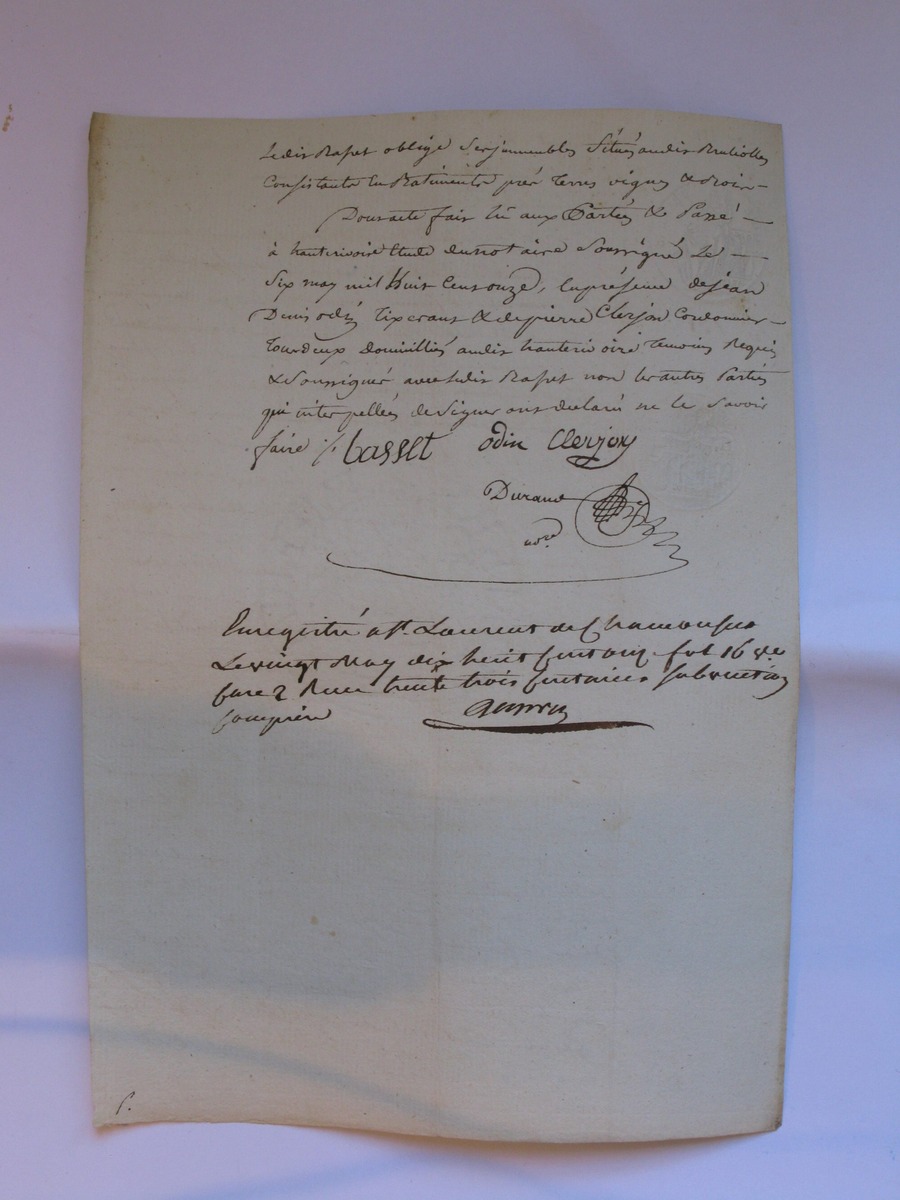 Ledit Basset oblige ses jmmeubles Situés audit Brutiolles
Consistants En Batiments prés Terres vignes & Bois —
Dont acte fait lû aux Parties & Passé —
à hauterivoire Etude du notaire Soussigné Le —
Six may mil Huit Cent onze, En présence de jean
Denis odin Tixerant & de pierre Clerjon Cordonnier —
Tous deux Domiciliés audit hauterivoire Temoins Requis
& Soussignés avec ledit Basset non les autres Parties
qui interpellées de Signer ont declaré ne le Savoir
faire /. basset odin Clerjon
Durand
not.re
Enregistré a St. Laurent de Chamousset
Le vingt May dix huit Cent onze fol 16 v.o
Case 2 Recu trente trois Centimes Subvention
Comprise